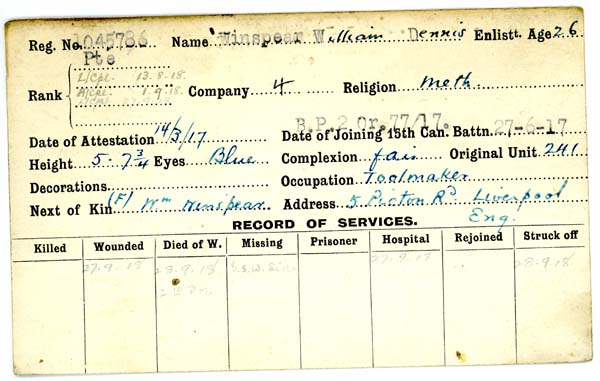 Reg. No. 1045786 Name Winspear William Dennis Enlistt. Age 26
Pte
L/Cpl. 13.8.18.
Rank A/Cpl. 1.9.18. Company 4 Religion Meth
B.P.2 Or.77/17.
Date of Attestation 14/3/17 Date of Joining 15th Can. Battn. 27-6-17
Height 5-7 3/4 Eyes Blue Complexion fair Original Unit 241
Decorations Occupation Toolmaker
Next of Kin (F) Wm Winspear Address 5 Picton Rd Liverpool
Eng.
RECORD OF SERVICES.
Killed Wounded Died of W. Missing Prisoner Hospital Rejoined Struck off
27.9.18 28.9.18 G.S.W. 27.9.18 28.9.18